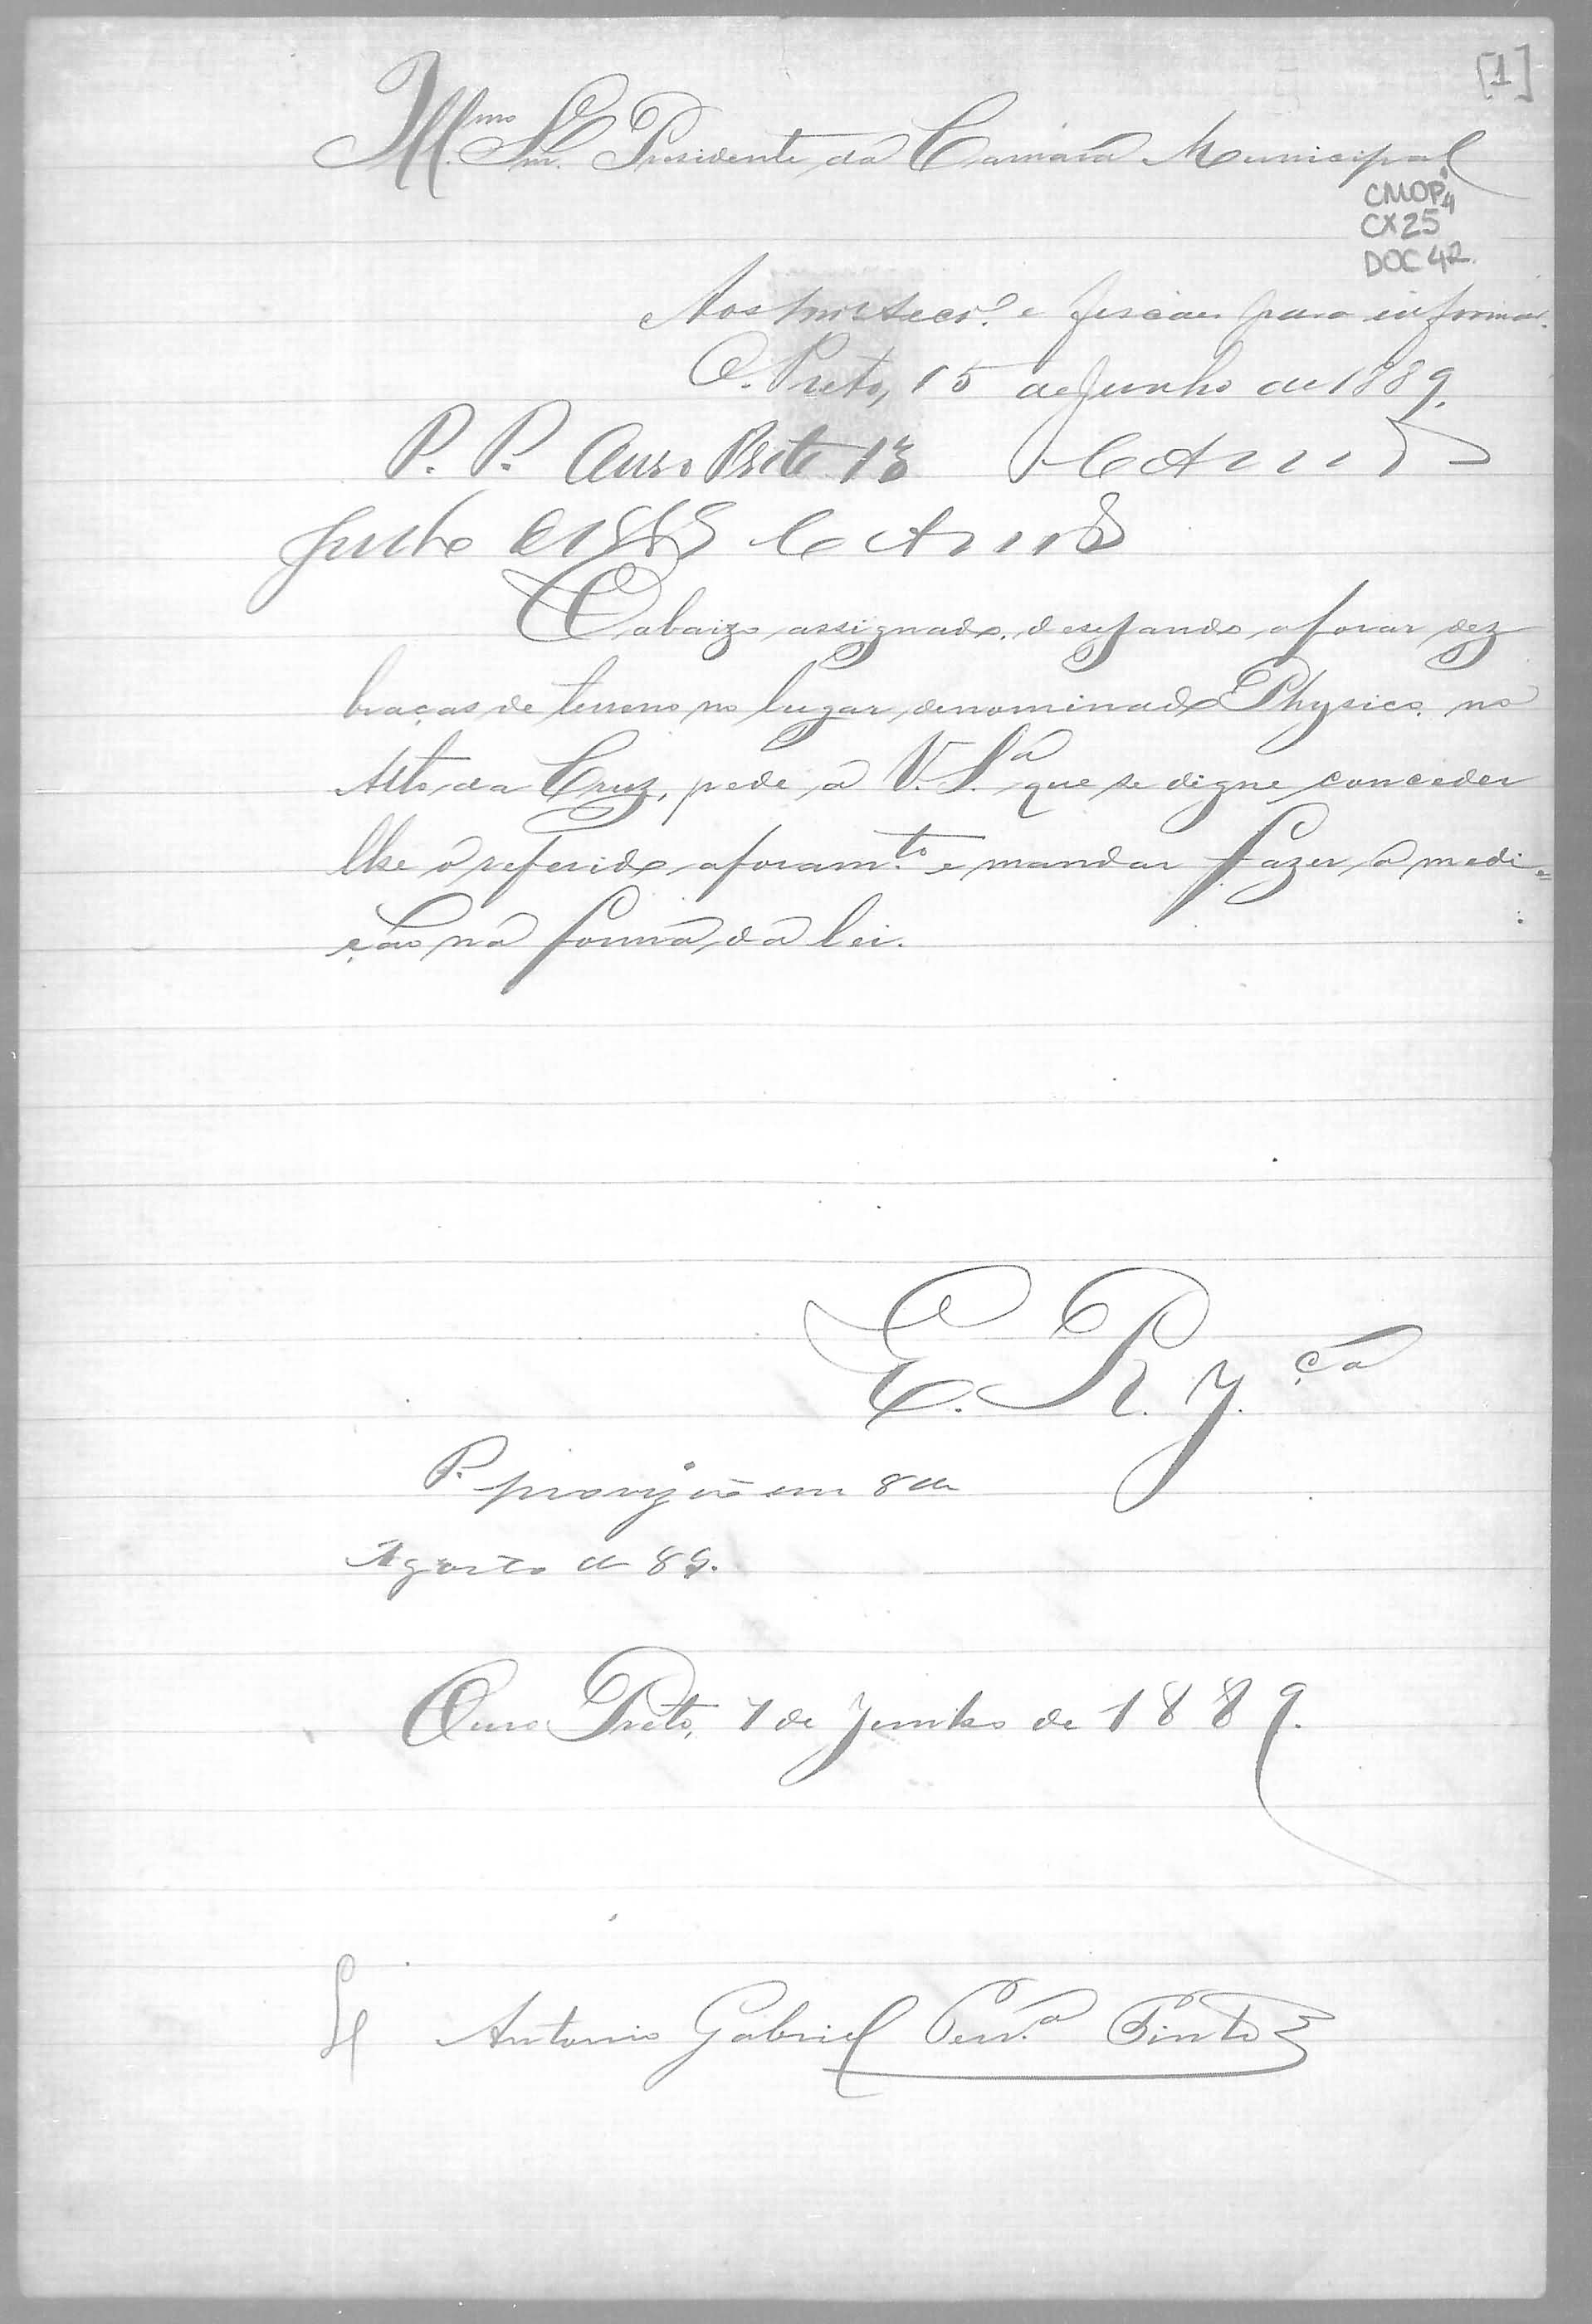 [1]
Illmo. Snr. Presidente da Camara Municipal
CMOP
CX 25
DOC 42
Aos e fiscaes para informar.
O. Preto, 15 de Junho de 1889.
P. P. Ouro Preto 13
de 1889
O abaixo assignado, desejando aforar dez
braças de terreno no lugar denominado Physico, no
Alto da Cruz, pede a V. Sa. que se digne conceder
lhe o referido aforamto. e mandar fazer a medi=
ção na forma da lei.
E. R. J.ça
P. provizão em 8 de
Agosto de 89.
Ouro Preto, 7 de Junho de 1889.
Antonio Gabriel Perª. Pinto